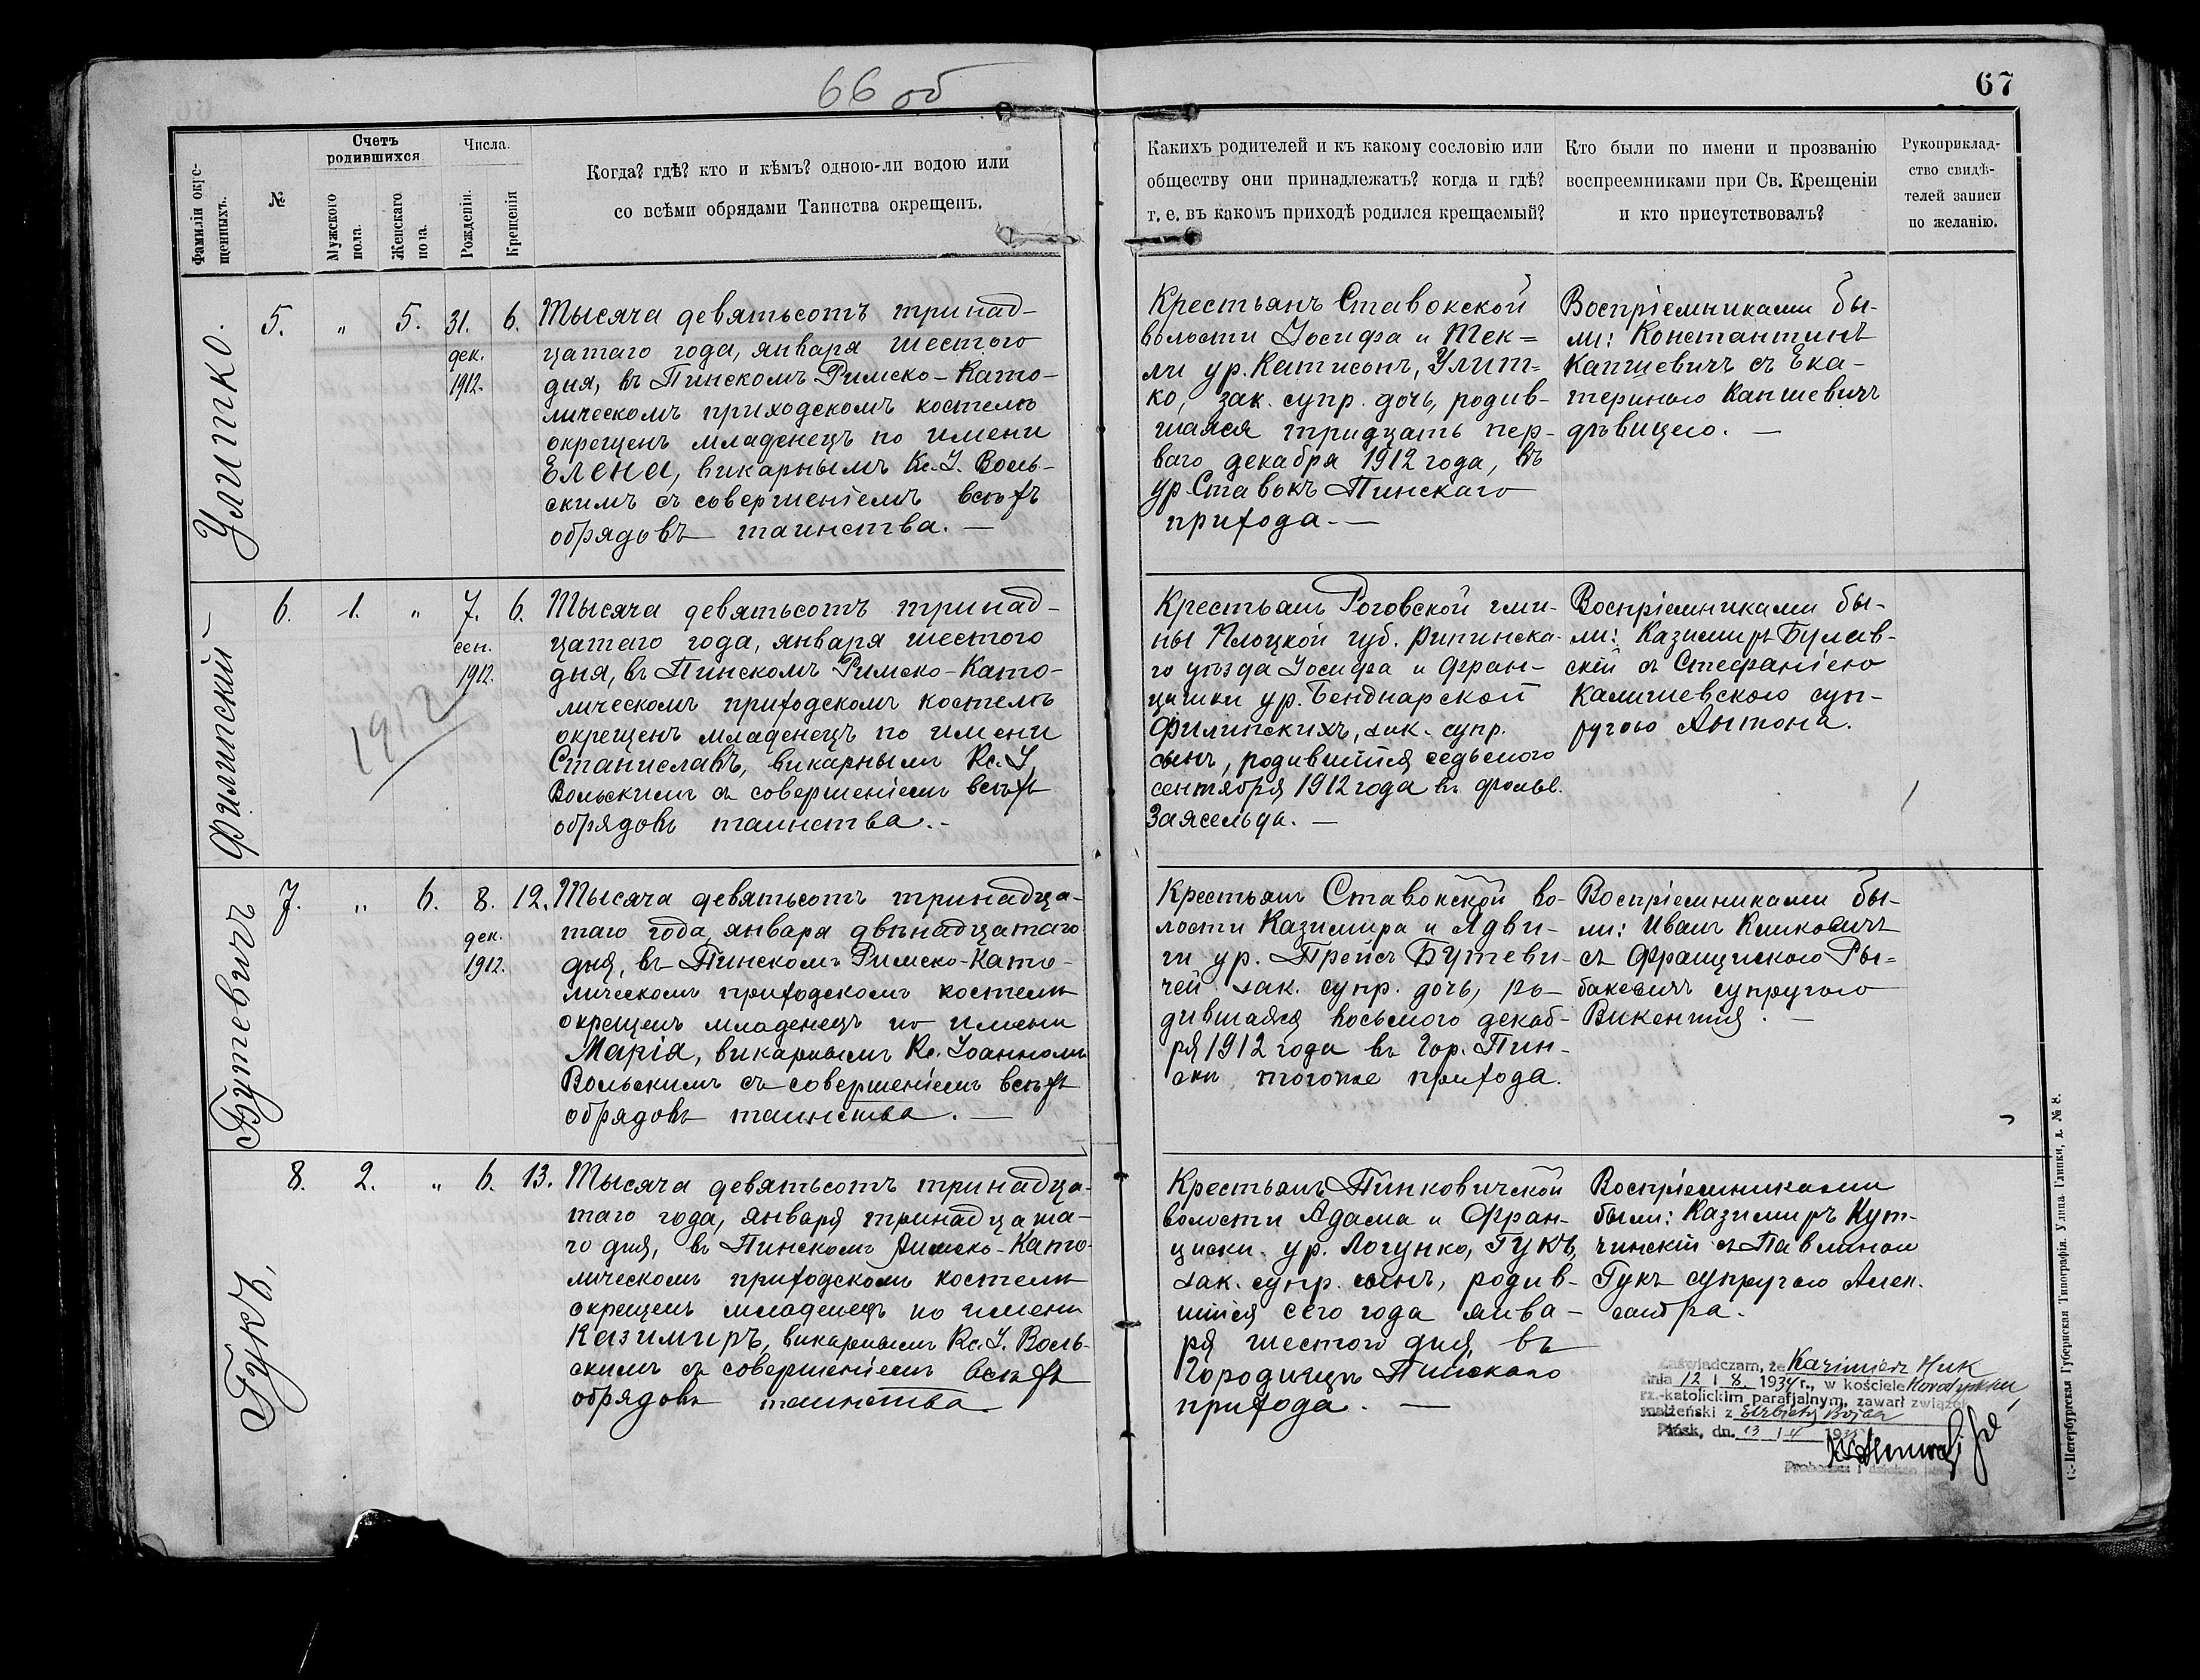 66 об
67
Фамиліи окре-
щенныхъ.
№
Счетъ
родившихся
Мужского
пола.
Женскаго
пола.
Числа.
Рожденія.
Крещенія
Когда? гдѣ? кто и кѣмъ? одною-ли водою или
со всѣми обрядами Таинства окрещенъ.
Какихъ родителей и къ какому сословію или
обществу они принадлежатъ? когда и гдѣ?
т. е. въ какомъ приходѣ родился крещаемый?
Кто были по имени и прозванію
воспреемниками при Св. Крещеніи
и кто присутствовалъ?
Рукоприклад-
ство свидѣ-
телей записи
по желанію.
Улитко.
5. „ 5. 31. 6.
дек.
1912.
Тысяча девятьсотъ тринад-
цатаго года, января шестого
дня, въ Пинскомъ Римско-Като-
лическомъ приходскомъ костелѣ
окрещенъ младенецъ по имени
Елена, викарнымъ Кс. І. Воль-
скимъ съ совершеніемъ всѣхъ
обрядовъ таинства. —
Крестьянъ Ставокской
волости Іосифа и Тек=
ли ур. Улит=
ко, зак. супр. дочь, родив-
шаяся тридцать пер-
ваго декабря 1912 года, въ
ур. Ставокъ Пинскаго
прихода. —
Воспріемниками бы-
ли: Константинъ
Капшевичъ съ Ека-
териною Капшевичъ
дѣвицею. —
Филипскій —
6. 1. „ 7. 6.
сен.
1912.
1912
Тысяча девятьсотъ тринад-
цатаго года, января шестого
дня, въ Пинскомъ Римско-Като-
лическомъ приходскомъ костелѣ
окрещенъ младенецъ по имени
Станиславъ, викарнымъ Кс. І.
Вольскимъ съ совершеніемъ всѣхъ
обрядовъ таинства. -
Крестьянъ Роговской гми-
ны Плоцкой губ. Рипинска-
го уѣзда Іосифа и Фран-
цишки ур. Бенднарской
Филипскихъ, зак. супр.
сынъ, родившійся седьмого
сентября 1912 года въ фольв.
Заясельда. —
Воспріемниками бы-
ли: Казимиръ Булав-
скій съ Стефаніею
Калишевскою суп-
ругою Антона.
Бутевичъ
7. „ 6. 8. 12.
дек.
1912.
Тысяча девятьсотъ тринадца-
таго года, января двѣнадцатаго
дня, въ Пинскомъ Римско-Като-
лическомъ приходскомъ костелѣ
окрещенъ младенецъ по имени
Марія, викарнымъ Кс. Іоанномъ
Вольскимъ съ совершеніемъ всѣхъ
обрядовъ таинства. —
Крестьянъ Ставокской во-
лости Казимира и Ядви-
ги ур. Трейсъ Бутеви-
чей зак. супр. дочь, ро-
дившаяся восьмого декаб-
ря 1912 года въ гор. Пин-
скѣ тогоже прихода.
Воспріемниками бы-
ли: Иванъ
съ Францишкою Ры=
баковичъ супругою
Викентія. —
Гукъ,
8. 2. „ 6. 13.
Тысяча девятьсотъ тринадца-
таго года, января тринадцата-
го дня, въ Пинскомъ Римско-Като-
лическомъ приходскомъ костелѣ
окрещенъ младенецъ по имени
Казимиръ, викарнымъ Кс. І. Воль-
скимъ съ совершеніемъ всѣхъ
обрядовъ таинства
Крестьянъ Пинковичской
волости Адама и Фран-
циски ур. Логунко, Гукъ,
зак. супр. сынъ, родив-
шійся сего года янва-
ря шестого дня, въ
Городищѣ Пинскаго
прихода. —
Воспріемниками
были: Казимиръ Кут-
чинскій съ Павлиною
Гукъ супругою Алек-
сандра.
Zaświadczam, że Kazimierz Huk
dnia 12 / 8 1934 r., w kościele
rz.-katolickim parafjalnym, zawarł związek
małżeński z Elżbietą
Pińsk, dn. 13 / 4 19
С.-Петербургская Губернская Типографія. Улица Глинки, д. № 8.